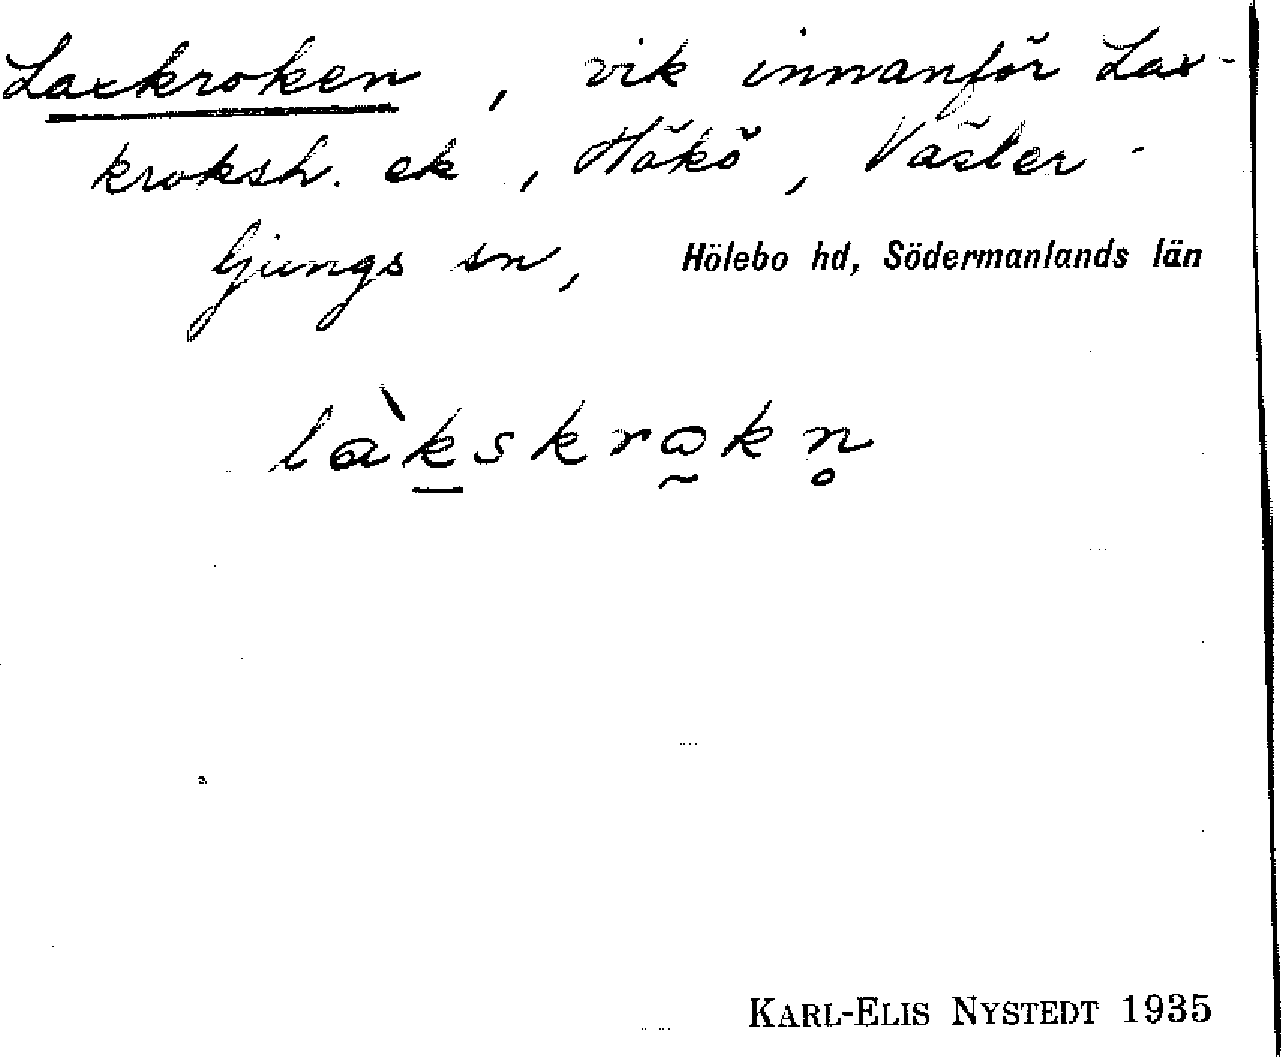 Laxkroken, vik innanför Lax-
kroksh. ek, Håkö, Väster-
ljungs sn, Hölebo hd, Södermanlands län
làkskrokn̥
KARL-ELIS NYSTEDT 1935